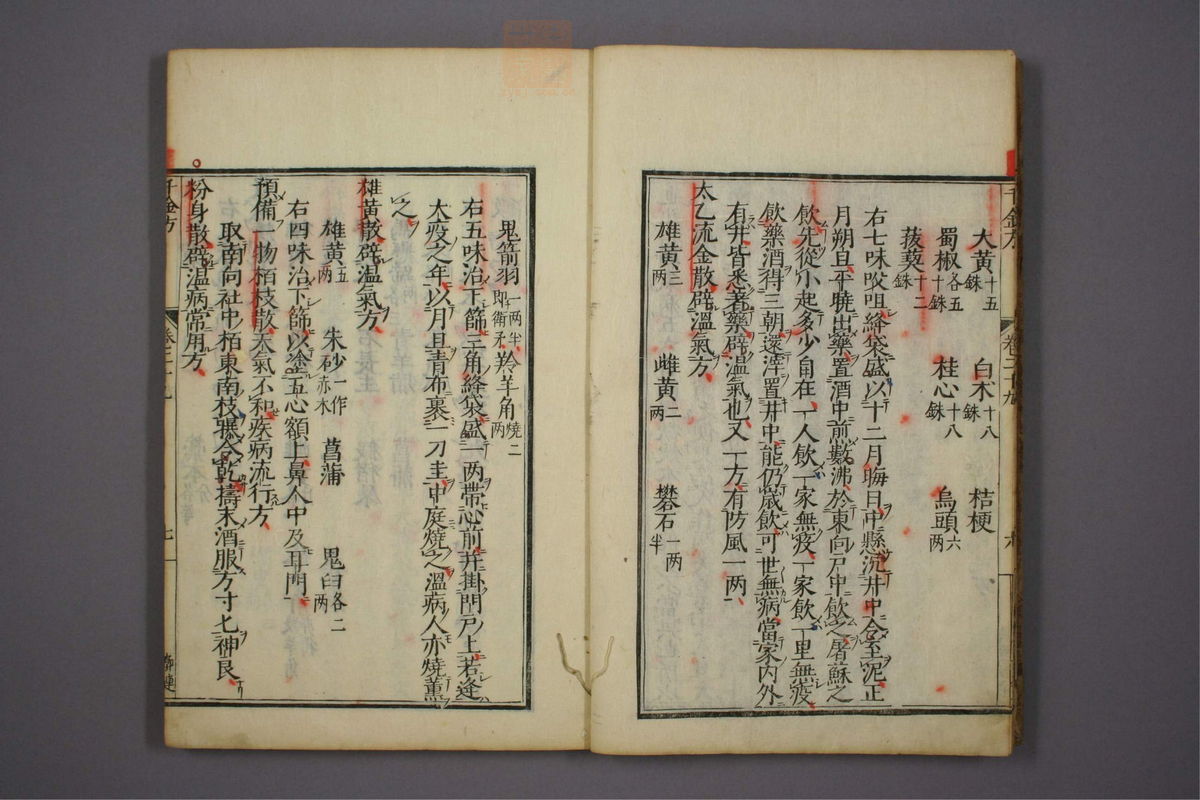 大黃十五銖 白朮十八銖 桔梗
蜀椒各五十銖 桂心十八銖 烏頭六兩
菝葜十二銖
右七味㕮咀絳袋盛以十二月晦日中懸沉井中令至泥正
月朔旦平曉出藥置酒中煎數沸於東向戶中飲之屠蘇之
飲先從小起多少自在一人飲一家無疫一家飲一里無疫
飲藥酒得三朝還滓置井中能仍歲飲可世無病當家內外
有井皆悉著藥辟溫氣也又一方有防風一兩
太乙流金散辟溫氣方
雄黃三兩 雌黃二兩 礬石一兩半
鬼箭羽一兩半即衛矛 羚羊角燒二兩
右五味治下篩三角絳袋盛一兩帶心前并掛門戶上若逢
大疫之年以月旦青布裹一刀圭中庭燒之溫病人亦燒薰
之
雄黃散辟溫氣方
雄黃五兩 朱砂一作赤木 菖蒲 鬼臼各二兩
右四味治下篩以塗五心額上鼻人中及耳門
預備一物柏枝散天氣不和疾病流行方
取南向社中柏東南枝曝令乾擣末酒服方寸匕神良
粉身散辟溫病常用方
千金方